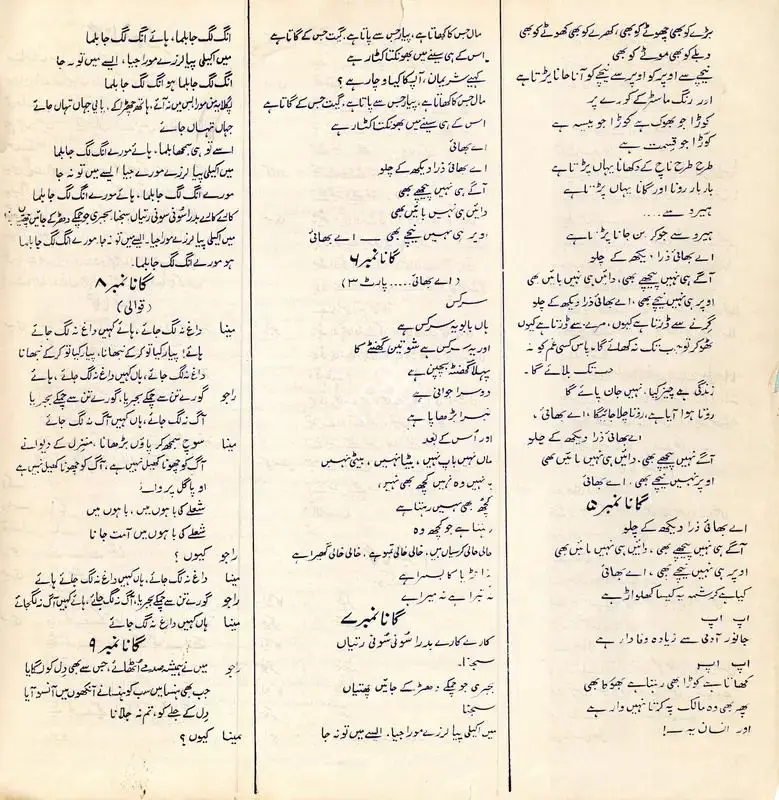 بڑے کو بھی چھوٹے کو بھی، کھرے کو بھی کھوٹے کو بھی
دبلے کو بھی موٹے کو بھی
نیچے سے اوپر کو اوپر سے نیچے کو آنا جانا پڑتا ہے
اور رنگ ماسٹر کے کوڑے پر
کوڑا جو بھوک ہے کوڑا جو پیسہ ہے
کوڑا جو قسمت ہے
طرح طرح ناچ کے دکھانا یہاں پڑتا ہے
بار بار رونا اور گانا یہاں پڑتا ہے
ہیرو سے ....
ہیرو سے جوکر بن جانا پڑتا ہے
اے بھائی ذرا دیکھ کے چلو
آگے ہی نہیں پیچھے بھی، دائیں ہی نہیں بائیں بھی
اوپر ہی نہیں نیچے بھی، اے بھائی ذرا دیکھ کے چلو
گرنے سے ڈرتا ہے کیوں، مرنے سے ڈرتا ہے کیوں
ٹھوکر تو جب تک نہ کھائے گا۔ پاس کسی غم کو نہ
جب تک بلائے گا۔
زندگی ہے چیز کیا، نہیں جان پائے گا
روتا ہوا آیا ہے، روتا چلا جائیگا، اے بھائی،
اے بھائی ذرا دیکھ کے چلو
آگے ہی نہیں پیچھے بھی۔ دائیں ہی نہیں بائیں بھی
اوپر ہی نہیں نیچے بھی۔ اے بھائی
گانا نمبر ۵
اے بھائی ذرا دیکھ کے چلو
آگے ہی نہیں پیچھے بھی، دائیں ہی نہیں بائیں بھی
اوپر ہی نہیں نیچے بھی، اے بھائی
کیا ہے کرشمہ یہ کیسا کھلواڑ ہے
اپ اپ
جانور آدمی سے زیادہ وفادار ہے
اپ اپ
کھاتا ہے کوڑا بھی رہتا ہے بھوکا بھی
پھر بھی وہ مالک پہ کرتا نہیں وار ہے
اور انسان یہ ــ!
مال جس کا کھاتا ہے، پیار جس سے پاتا ہے، گیت جس کے گاتا ہے
اس کے ہی سینے میں بھونکتا کٹار ہے
کہیے شریمان، آپ کا کیا وچار ہے؟
مال جس کا کھاتا ہے، پیار جس سے پاتا ہے، گیت جس کے گاتا ہے
اس کے ہی سینے میں بھونکتا کٹار ہے
اے بھائی
اے بھائی ذرا دیکھ کے چلو
آگے ہی نہیں پیچھے بھی
دائیں ہی نہیں بائیں بھی
اوپر ہی نہیں نیچے بھی ــ اے بھائی
گانا نمبر ۶
(اے بھائی ..... پارٹ ۳)
سرکس
ہاں بابو یہ سرکس ہے
اور یہ سرکس ہے شو تین گھنٹے کا
پہلا گھنٹہ بچپن ہے
دوسرا جوانی ہے
تیسرا بڑھاپا ہے
اور اُس کے بعد
ماں نہیں باپ نہیں، بیٹا نہیں، بیٹی نہیں
یہ نہیں وہ نہیں کچھ بھی نہیں،
کچھ بھی نہیں رہتا ہے
رہتا ہے جو کچھ وہ
خالی خالی کرسیاں ہیں، خالی خالی تمبو ہے، خالی خالی گھیرا ہے
بنا چڑیا کا بسیرا ہے
نہ تیرا ہے نہ میرا ہے
گانا نمبر ۷
کارے کارے بدرا سُونی سُونی رتیاں
سجنا۔
بجری جو چمکے دھڑکے جائیں چھتیاں
سجنا
میں اکیلی پیا لرزے مورا جیا۔ ایسے میں تو نہ جا
انگ لگ جا بلما، ہائے انگ لگ جا بلما
میں اکیلی پیا لرزے مورا جیا، ایسے میں تو نہ جا
انگ لگ جا بلما ہو انگ لگ جا بلما
پگلا بدن مورا بس میں نہ آئے، ہاتھ چھڑا کے پاپی جہاں تہاں جائے
جہاں تہاں جائے
اسے تو ہی سمجھا بلما، ہائے مورے انگ لگ جا بلما
میں اکیلی پیا لرزے مورے جیا ایسے میں تو نہ جا
مورے انگ لگ جا بلما، ہائے مورے انگ لگ جا بلما
کالے کالے بدرا سونی سونی رتیاں سجنا، بجری جو چمکے دھڑکے جائیں چھتیاں
میں اکیلی پیا لرزے مورا جیا۔ ایسے میں تو نہ جا، مورے انگ لگ جا بلما
ہو مورے انگ لگ جا بلما۔
گانا نمبر ۸
(قوالی)
مینا داغ نہ لگ جائے، ہائے کہیں داغ نہ لگ جائے
ہائے! پیار کیا تو کر کے نبھانا، پیار کیا تو کر کے نبھانا
داغ نہ لگ جائے، ہاں کہیں داغ نہ لگ جائے، ہائے
راجو گورے تن سے چمکے بجریا، گورے تن سے چمکے بجریا
آگ نہ لگ جائے، ہاں کہیں آگ نہ لگ جائے
مینا سوچ سمجھ کر پاؤں بڑھانا، منزل کے دیوانے
آگ کو چھونا کھیل نہیں ہے، آگ کو چھونا کھیل نہیں ہے
او پاگل پروانے
شعلے کی باہوں میں، باہوں میں
شعلے کی باہوں میں مت جانا
راجو کیوں؟
مینا داغ نہ لگ جائے، ہاں کہیں داغ نہ لگ جائے ہائے
راجو گورے تن سے چمکے بجریا، آگ نہ لگ جائے، ہائے کہیں آگ نہ لگ جائے
مینا ہاں کہیں داغ نہ لگ جائے
گانا نمبر ۹
راجو میں نے ہمیشہ صدمے اُٹھائے، جس سے بھی دل کو لگایا
جب بھی ہنسا میں سب کو ہنسانے آنکھوں میں آنسو آیا
دل کے جلے کو، تم نہ جلانا
مینا کیوں؟